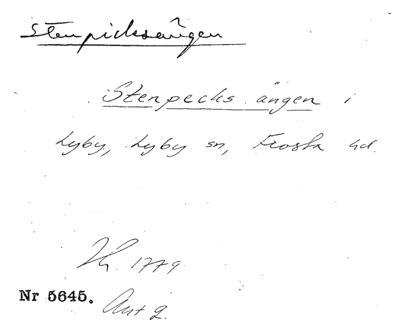 Stenpicksängen
Stenpecks ängen i
Lyby, Lyby sn, Frosta hd.
1779
Nr 5645.